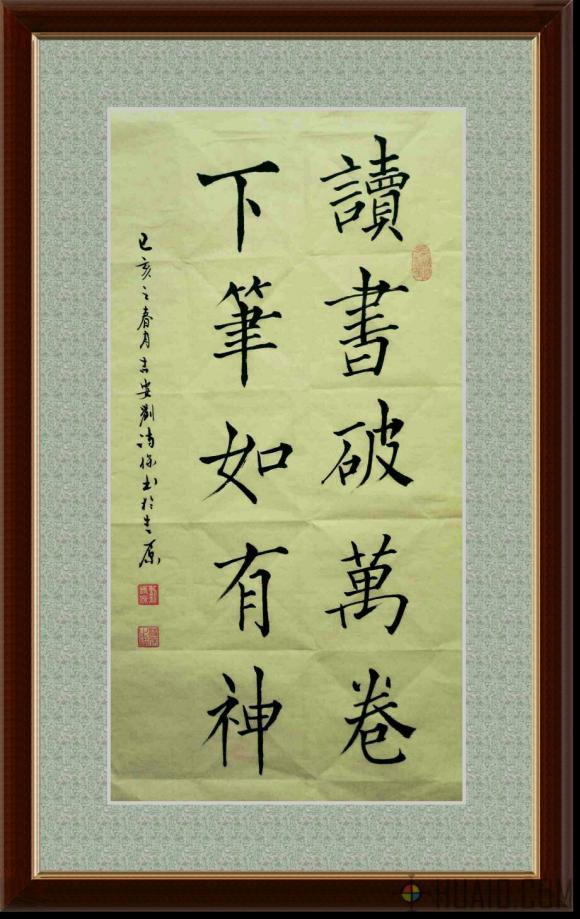 讀書破萬卷
下筆如有神
己亥之春月吉安劉
書於
HUAID.COM